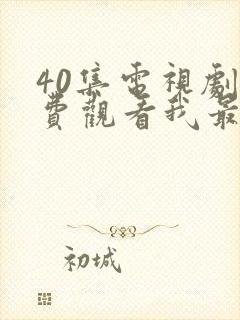 40集電視劇
費觀看我最
初城